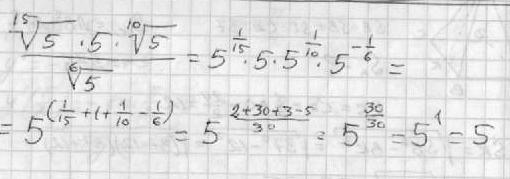 \frac{\sqrt[15]{5} \cdot 5 \cdot \sqrt[10]{5}}{\sqrt[6]{5}} = 5^{\frac{1}{15}} \cdot 5 \cdot 5^{\frac{1}{10}} \cdot 5^{-\frac{1}{6}} =
= 5^{(\frac{1}{15} + 1 + \frac{1}{10} - \frac{1}{6})} = 5^{\frac{2+30+3-5}{30}} = 5^{\frac{30}{30}} = 5^1 = 5